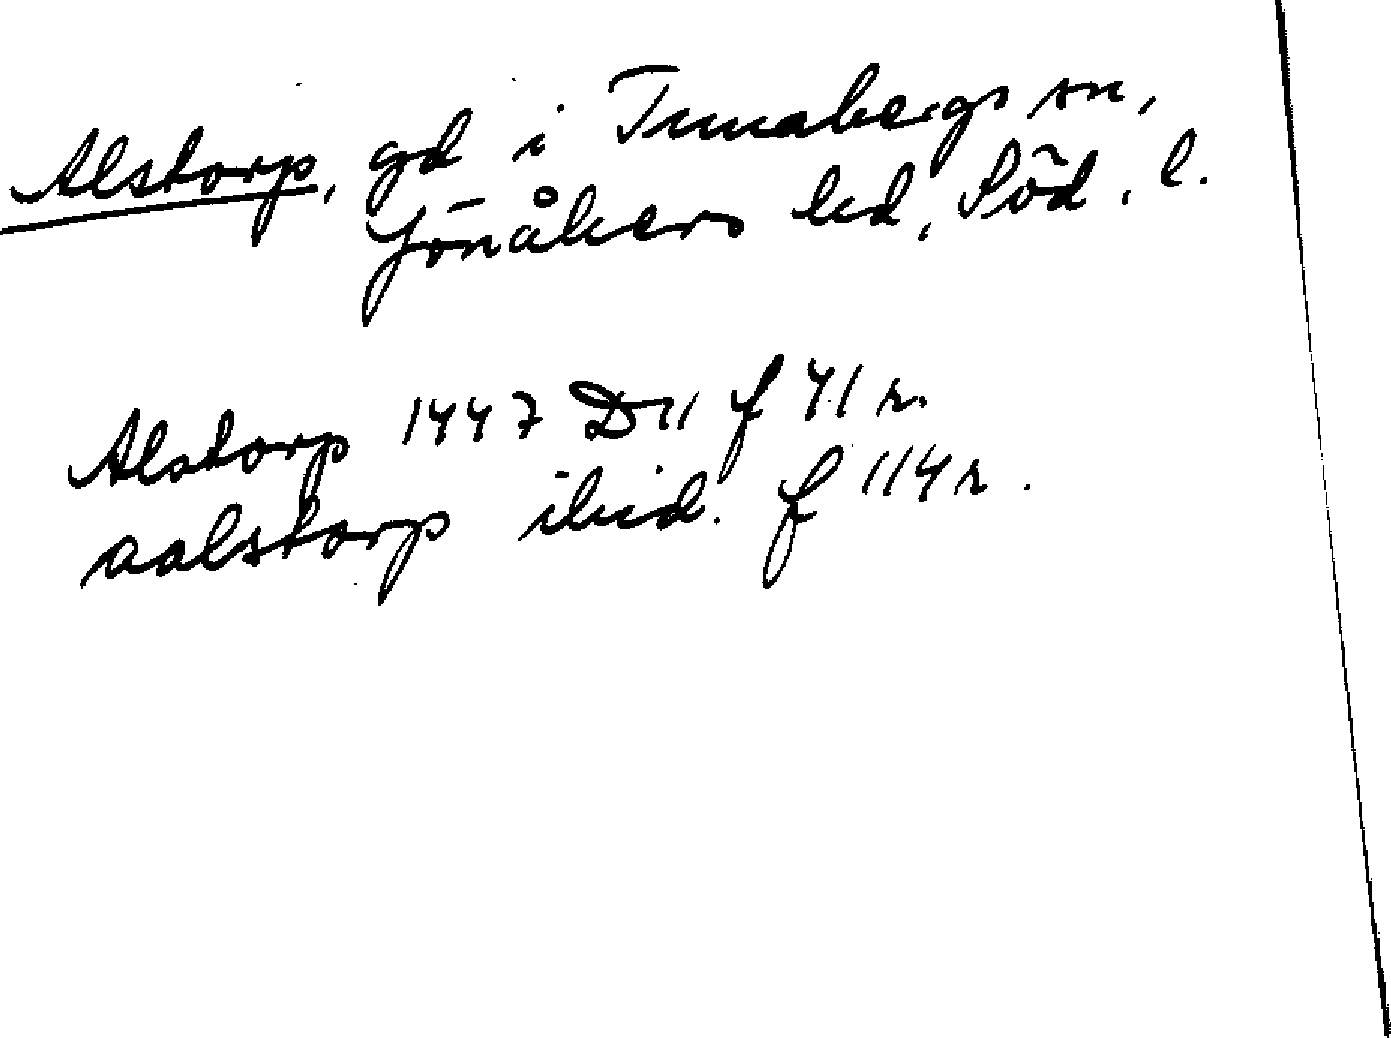 Alstorp, gd i Tunabergs sn,
Jönåkers hd, Söd. l.
Alstorp 1447 D 11 f 41 r.
aalstorp ibid. f 114 r.